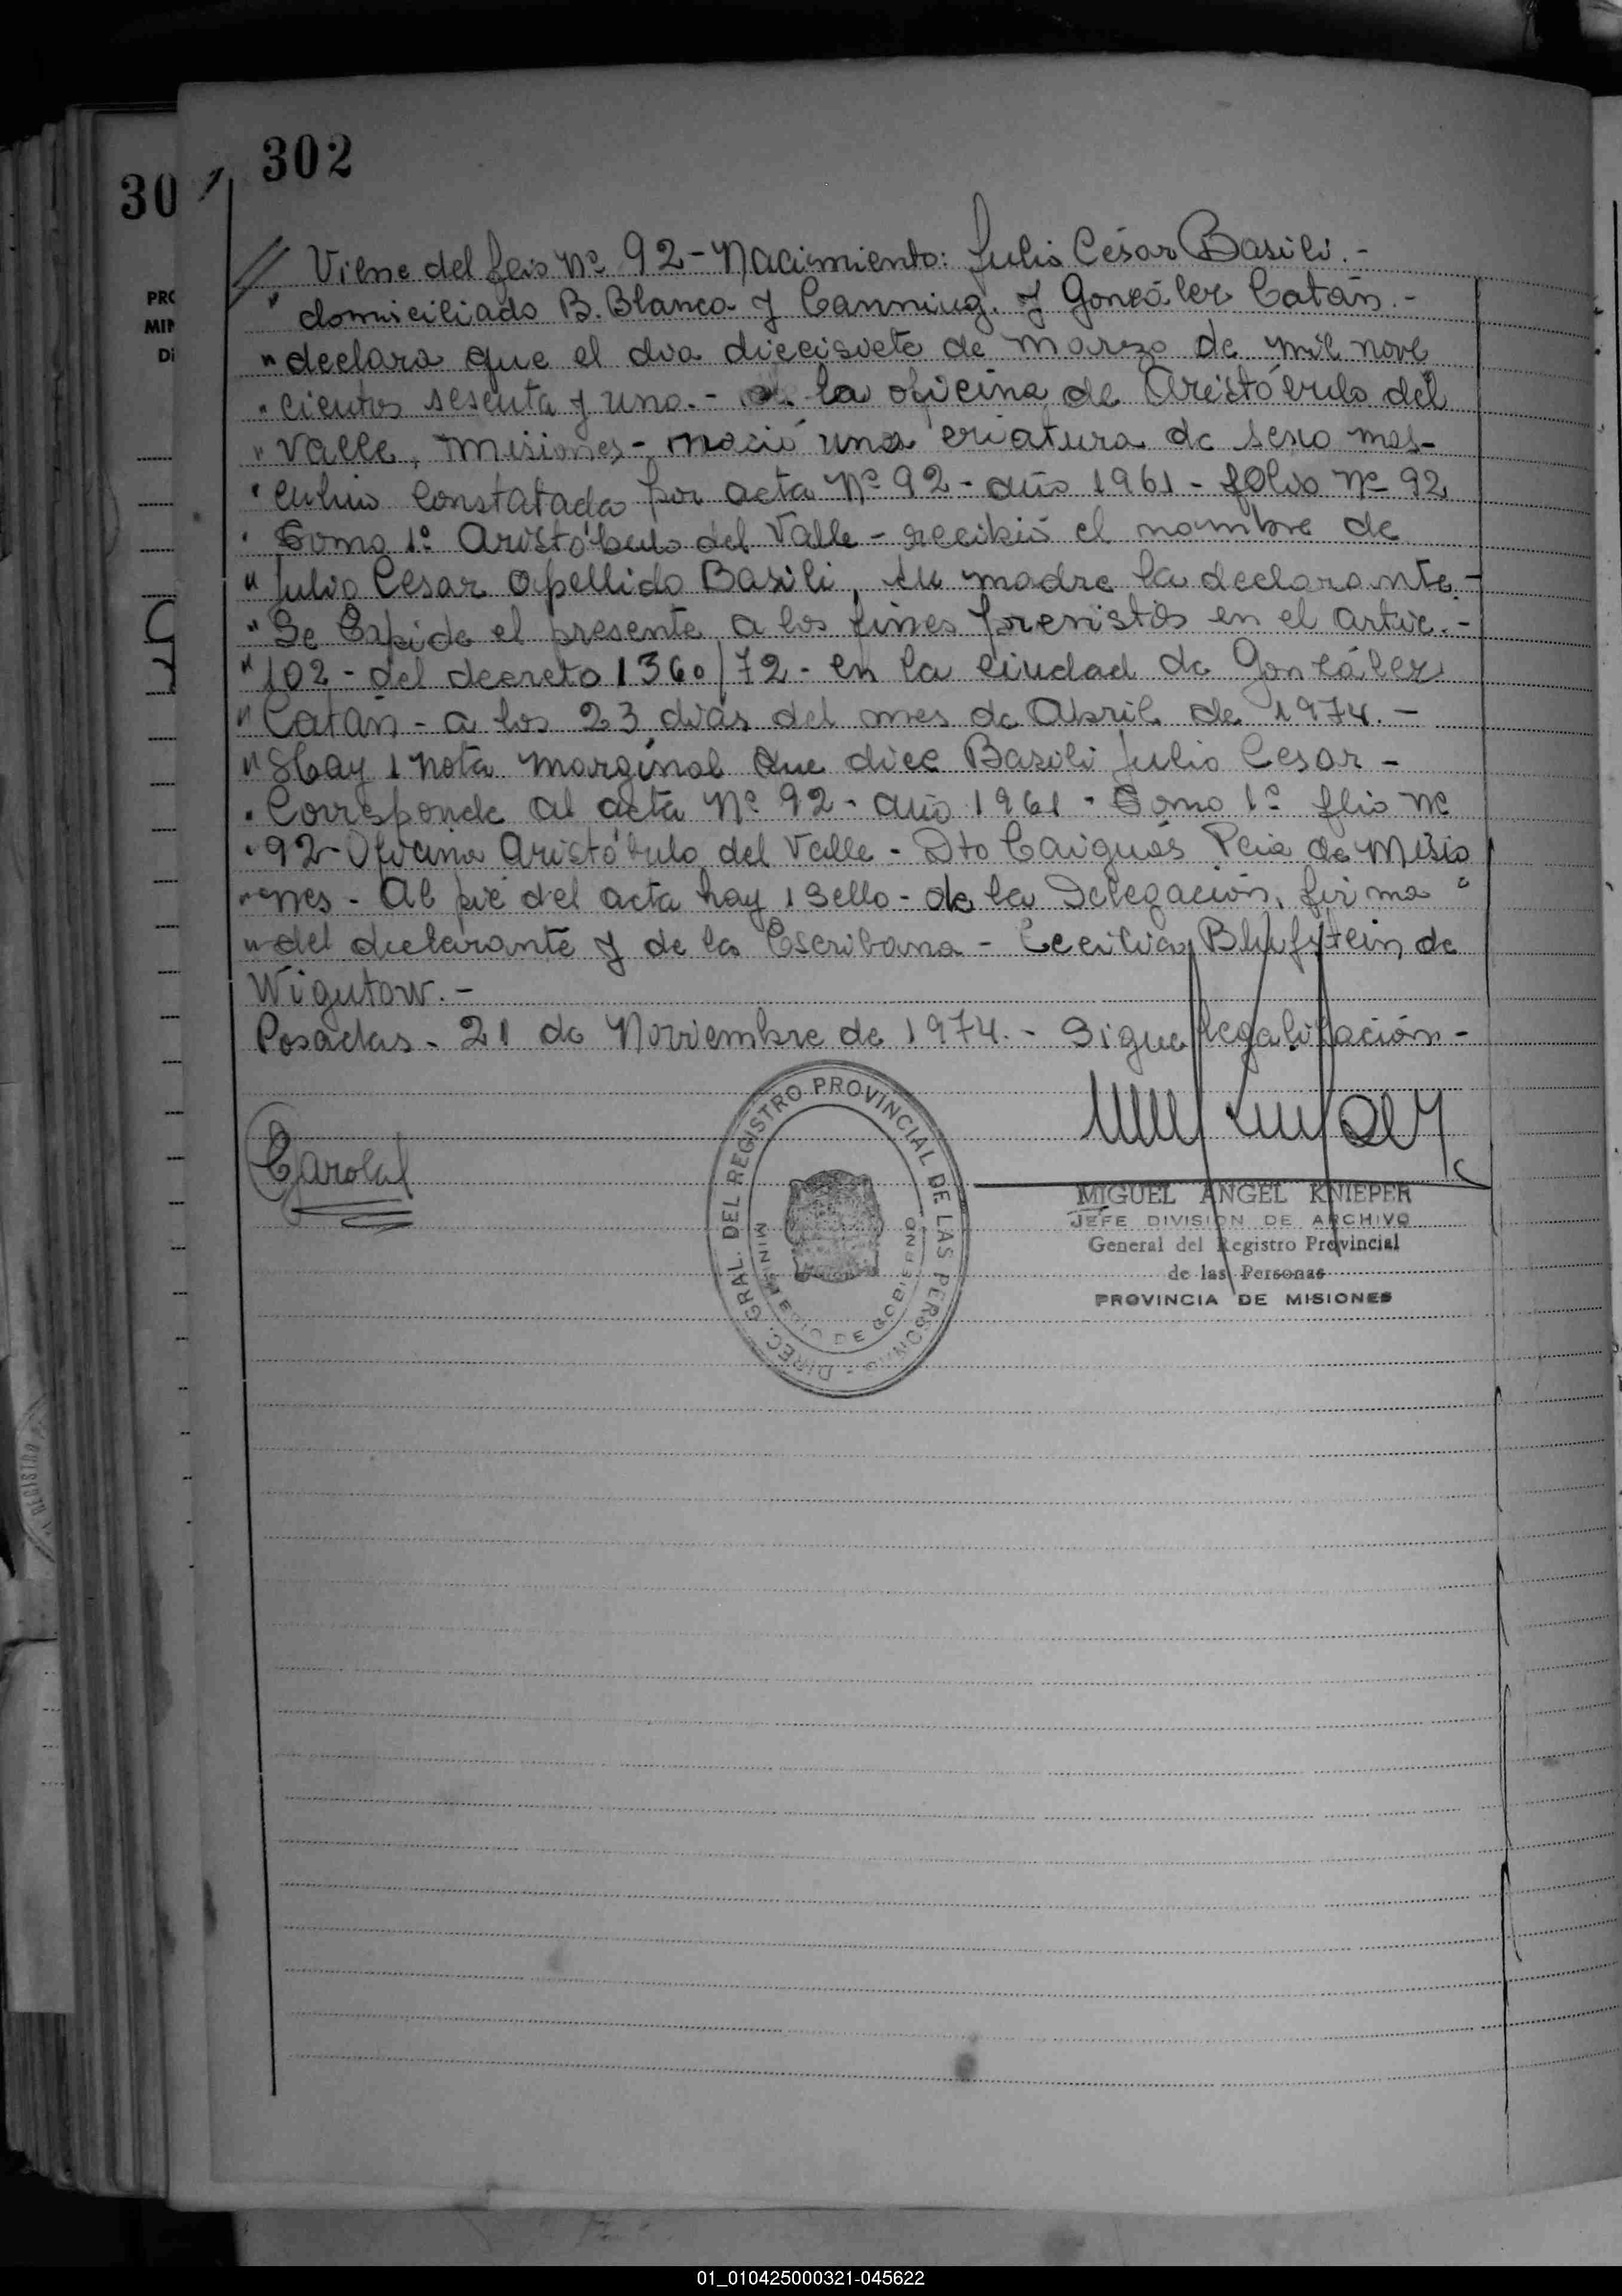 302
30
PRO
MIN
Di
// Viene del flio Nº 92 - Nacimiento: Julio César Basili.-
" domiciliado B. Blanca y Canning. y González Catán.-
" declara que el dia diecisiete de marzo de mil nove
" cientos sesenta y uno.- la oficina de Aristóbulo del
" Valle, Misiones - nació una criatura de sexo mas-
" culino constatada por acta Nº 92 - año 1961 - folio Nº 92
" Tomo 1º Aristóbulo del Valle - recibió el nombre de
" Julio Cesar apellido Basili, su madre la declarante.-
" Se Expide el presente a los fines previstos en el artic.-
" 102 - del decreto 1360/72 - en la ciudad de González
" Catán - a los 23 dias del mes de Abril de 1974.-
" Hay 1 nota marginal que dice Basili Julio Cesar -
" Corresponde al acta Nº 92 - año 1961 - Tomo 1º flio Nº
" 92 - Oficina Aristóbulo del Valle - Dto Cainguás Pcia de Misio
" nes - Al pié del acta hay 1 sello - de la Delegación, firma "
" del declarante y de la Escribana - Cecilia Blufstein de
Wigutow.-
Posadas - 21 de Noviembre de 1974.- Sigue legalización -
DIREC. GRAL. DEL REGISTRO PROVINCIAL DE LAS PERSONAS
MINISTERIO DE GOBIERNO
MIGUEL ANGEL KNIEPER
JEFE DIVISION DE ARCHIVO
General del Registro Provincial
de las Personas
PROVINCIA DE MISIONES
REGISTRO
01_010425000321-045622